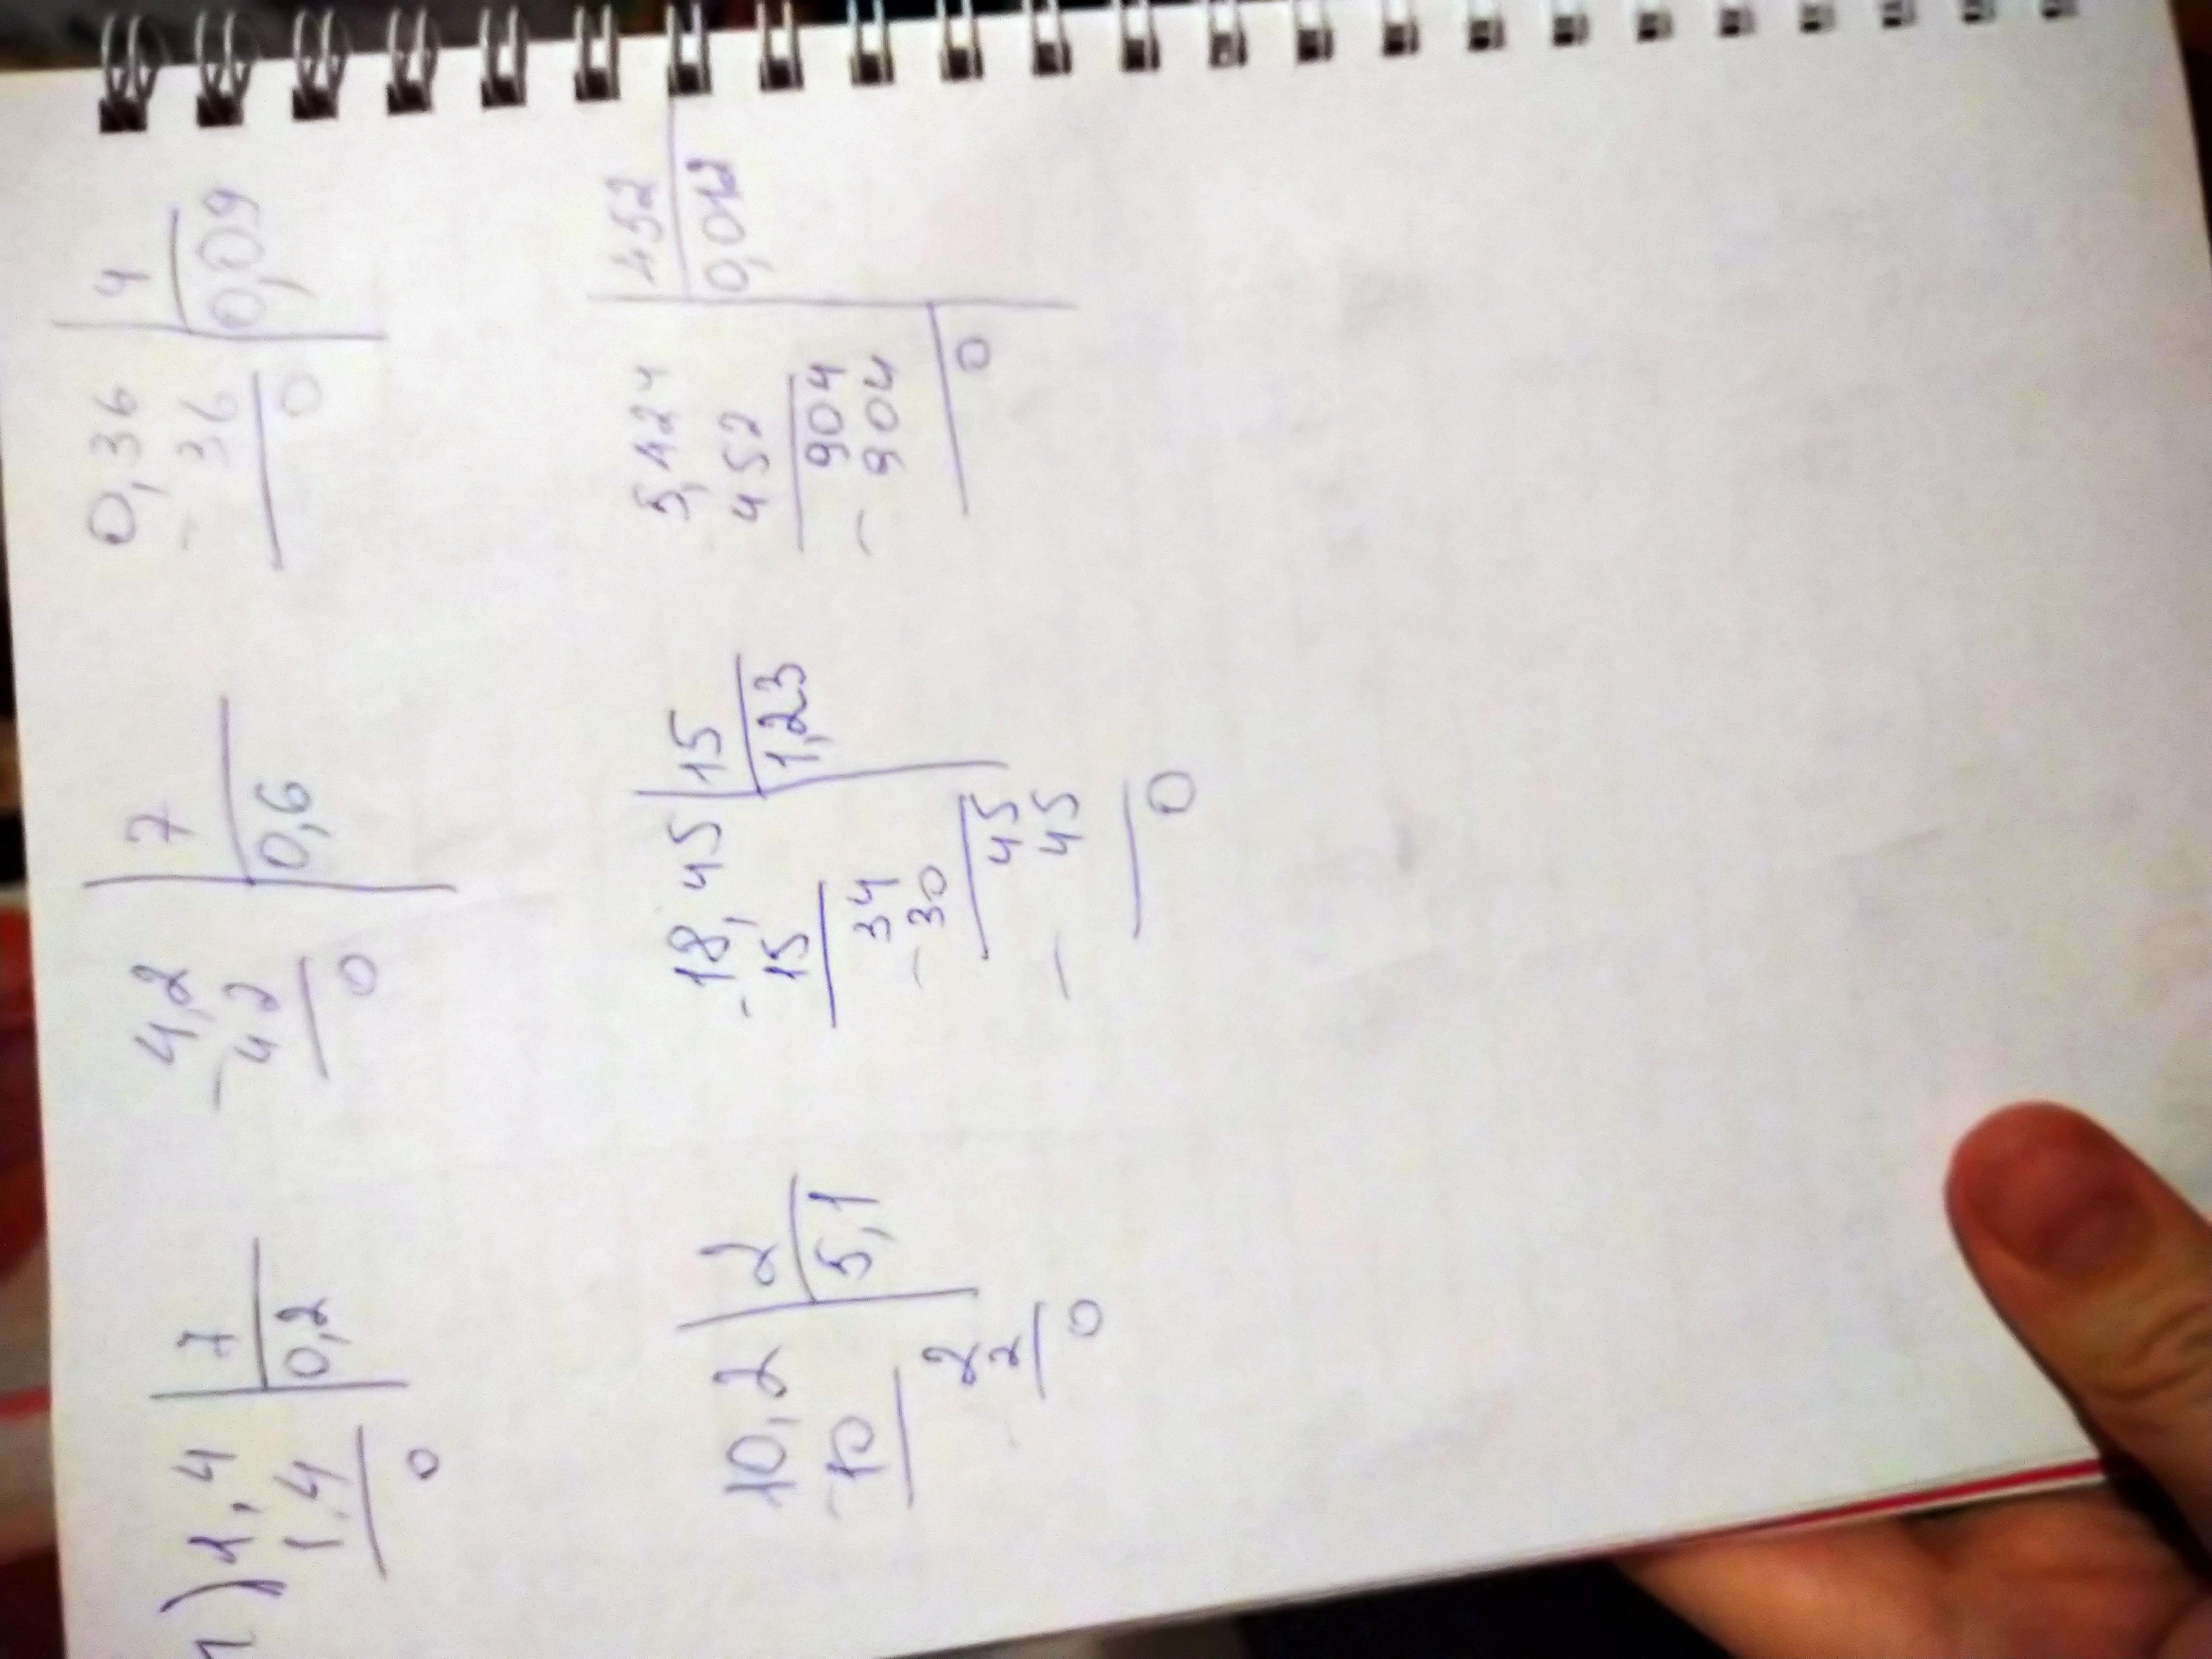 1) 1,4 7
1,4 0,2
0
4,2 7
- 42 0,6
0
0,36 4
- 36 0,09
0
10,2 2
- 10 5,1
2
2
0
18,45 15
- 15 1,23
34
- 30
45
- 45
0
5,424 452
452 0,012
904
- 904
0